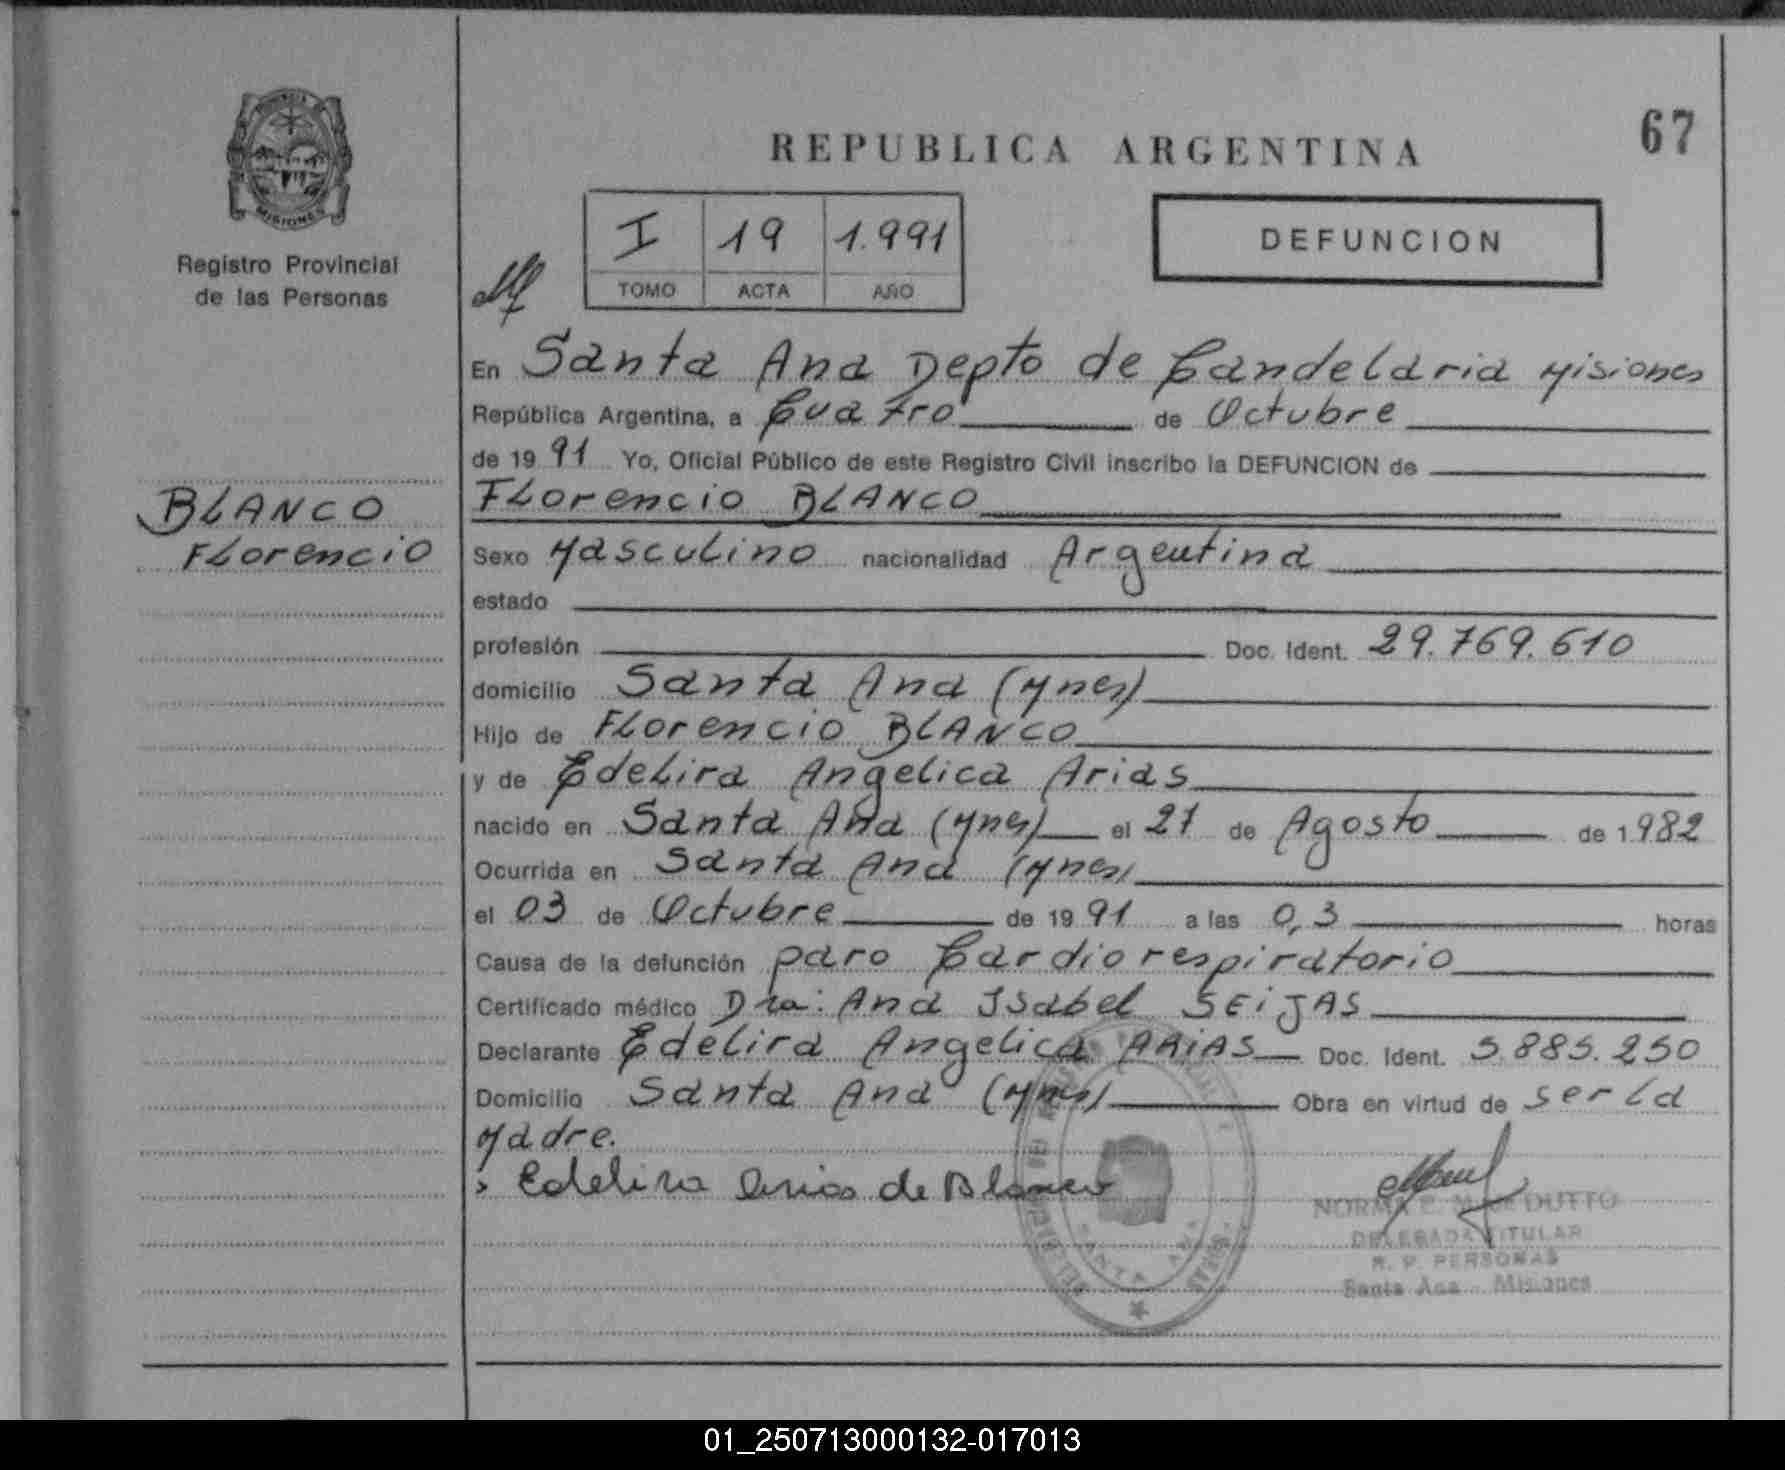 67
REPUBLICA ARGENTINA
MISIONES
Registro Provincial
de las Personas
I 19 1.991
TOMO ACTA AÑO
DEFUNCION
En Santa Ana Depto de Candelaria Misiones
República Argentina, a Cuatro de Octubre
de 19 91 Yo, Oficial Público de este Registro Civil inscribo la DEFUNCION de
BLANCO
Florencio
Florencio BLANCO
Sexo Masculino nacionalidad Argentina
estado
profesión Doc. Ident. 29.769.610
domicilio Santa Ana (Mnes)
Hijo de Florencio BLANCO
y de Edelira Angelica Arias
nacido en Santa Ana (Mnes) el 27 de Agosto de 1982
Ocurrida en Santa Ana (Mnes)
el 03 de Octubre de 19 91 a las 0,3 horas
Causa de la defunción paro Cardiorespiratorio
Certificado médico Dra: Ana Isabel SEIJAS
Declarante Edelira Angelica ARIAS Doc. Ident. 5.885.250
Domicilio Santa Ana (Mnes) Obra en virtud de ser la
Madre.
Edelira Arias de Blanco
SANTA ANA
NORMA C. M. de DUTTO
DELEGADA TITULAR
R. P. PERSONAS
Santa Ana - Misiones
01_250713000132-017013